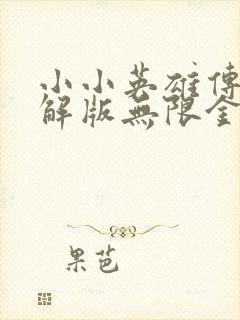 小小英雄傳
解版無限金
果芭